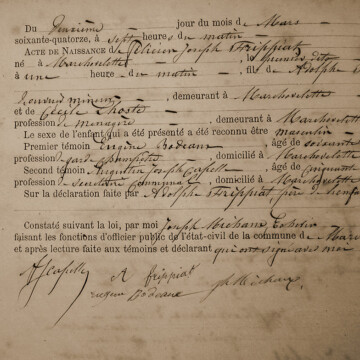 Du deuxième jour du mois de Mars
soixante-quatorze, à sept heures du matin
ACTE DE NAISSANCE de Félicien Joseph Frippiat
né à Marchovelette le quinze dito
à une heure du matin, fils de Adolphe
mineur, demeurant à Marchovelette
et de Cécile
profession de ménagère, demeurant à Marchovelette
Le sexe de l'enfant qui a été présenté a été reconnu être masculin
Premier témoin Eugène Bodeaux, âgé de soixante
profession garde champêtre, domicilié à Marchovelette
Second témoin Augustin Joseph Capelle, âgé de cinquante
profession de secrétaire communal, domicilié à Marchovelette
Sur la déclaration faite par Adolphe Frippiat père de l'enfant
Constaté suivant la loi, par moi Joseph Michaux, Echevin
faisant les fonctions d'officier public de l'état-civil de la commune de Mar
et après lecture faite aux témoins et déclarant qui ont signé avec moi
AJ Capelle A frippiat
Eugène Bodeaux J Michaux